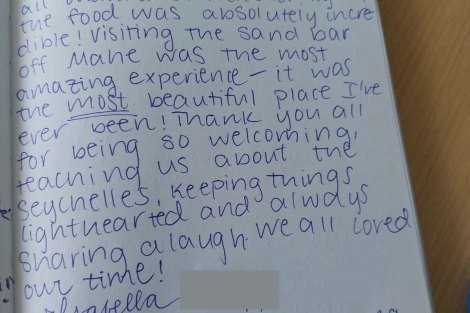 all
the food was absolutely incre
dible! Visiting the sand bar
off Mahe was the most
amazing experience - it was
the most beautiful place I've
ever been! Thank you all
for being so welcoming,
teaching us about the
Seychelles, keeping things
lighthearted and always
sharing a laugh. We all loved
our time!
Isabella